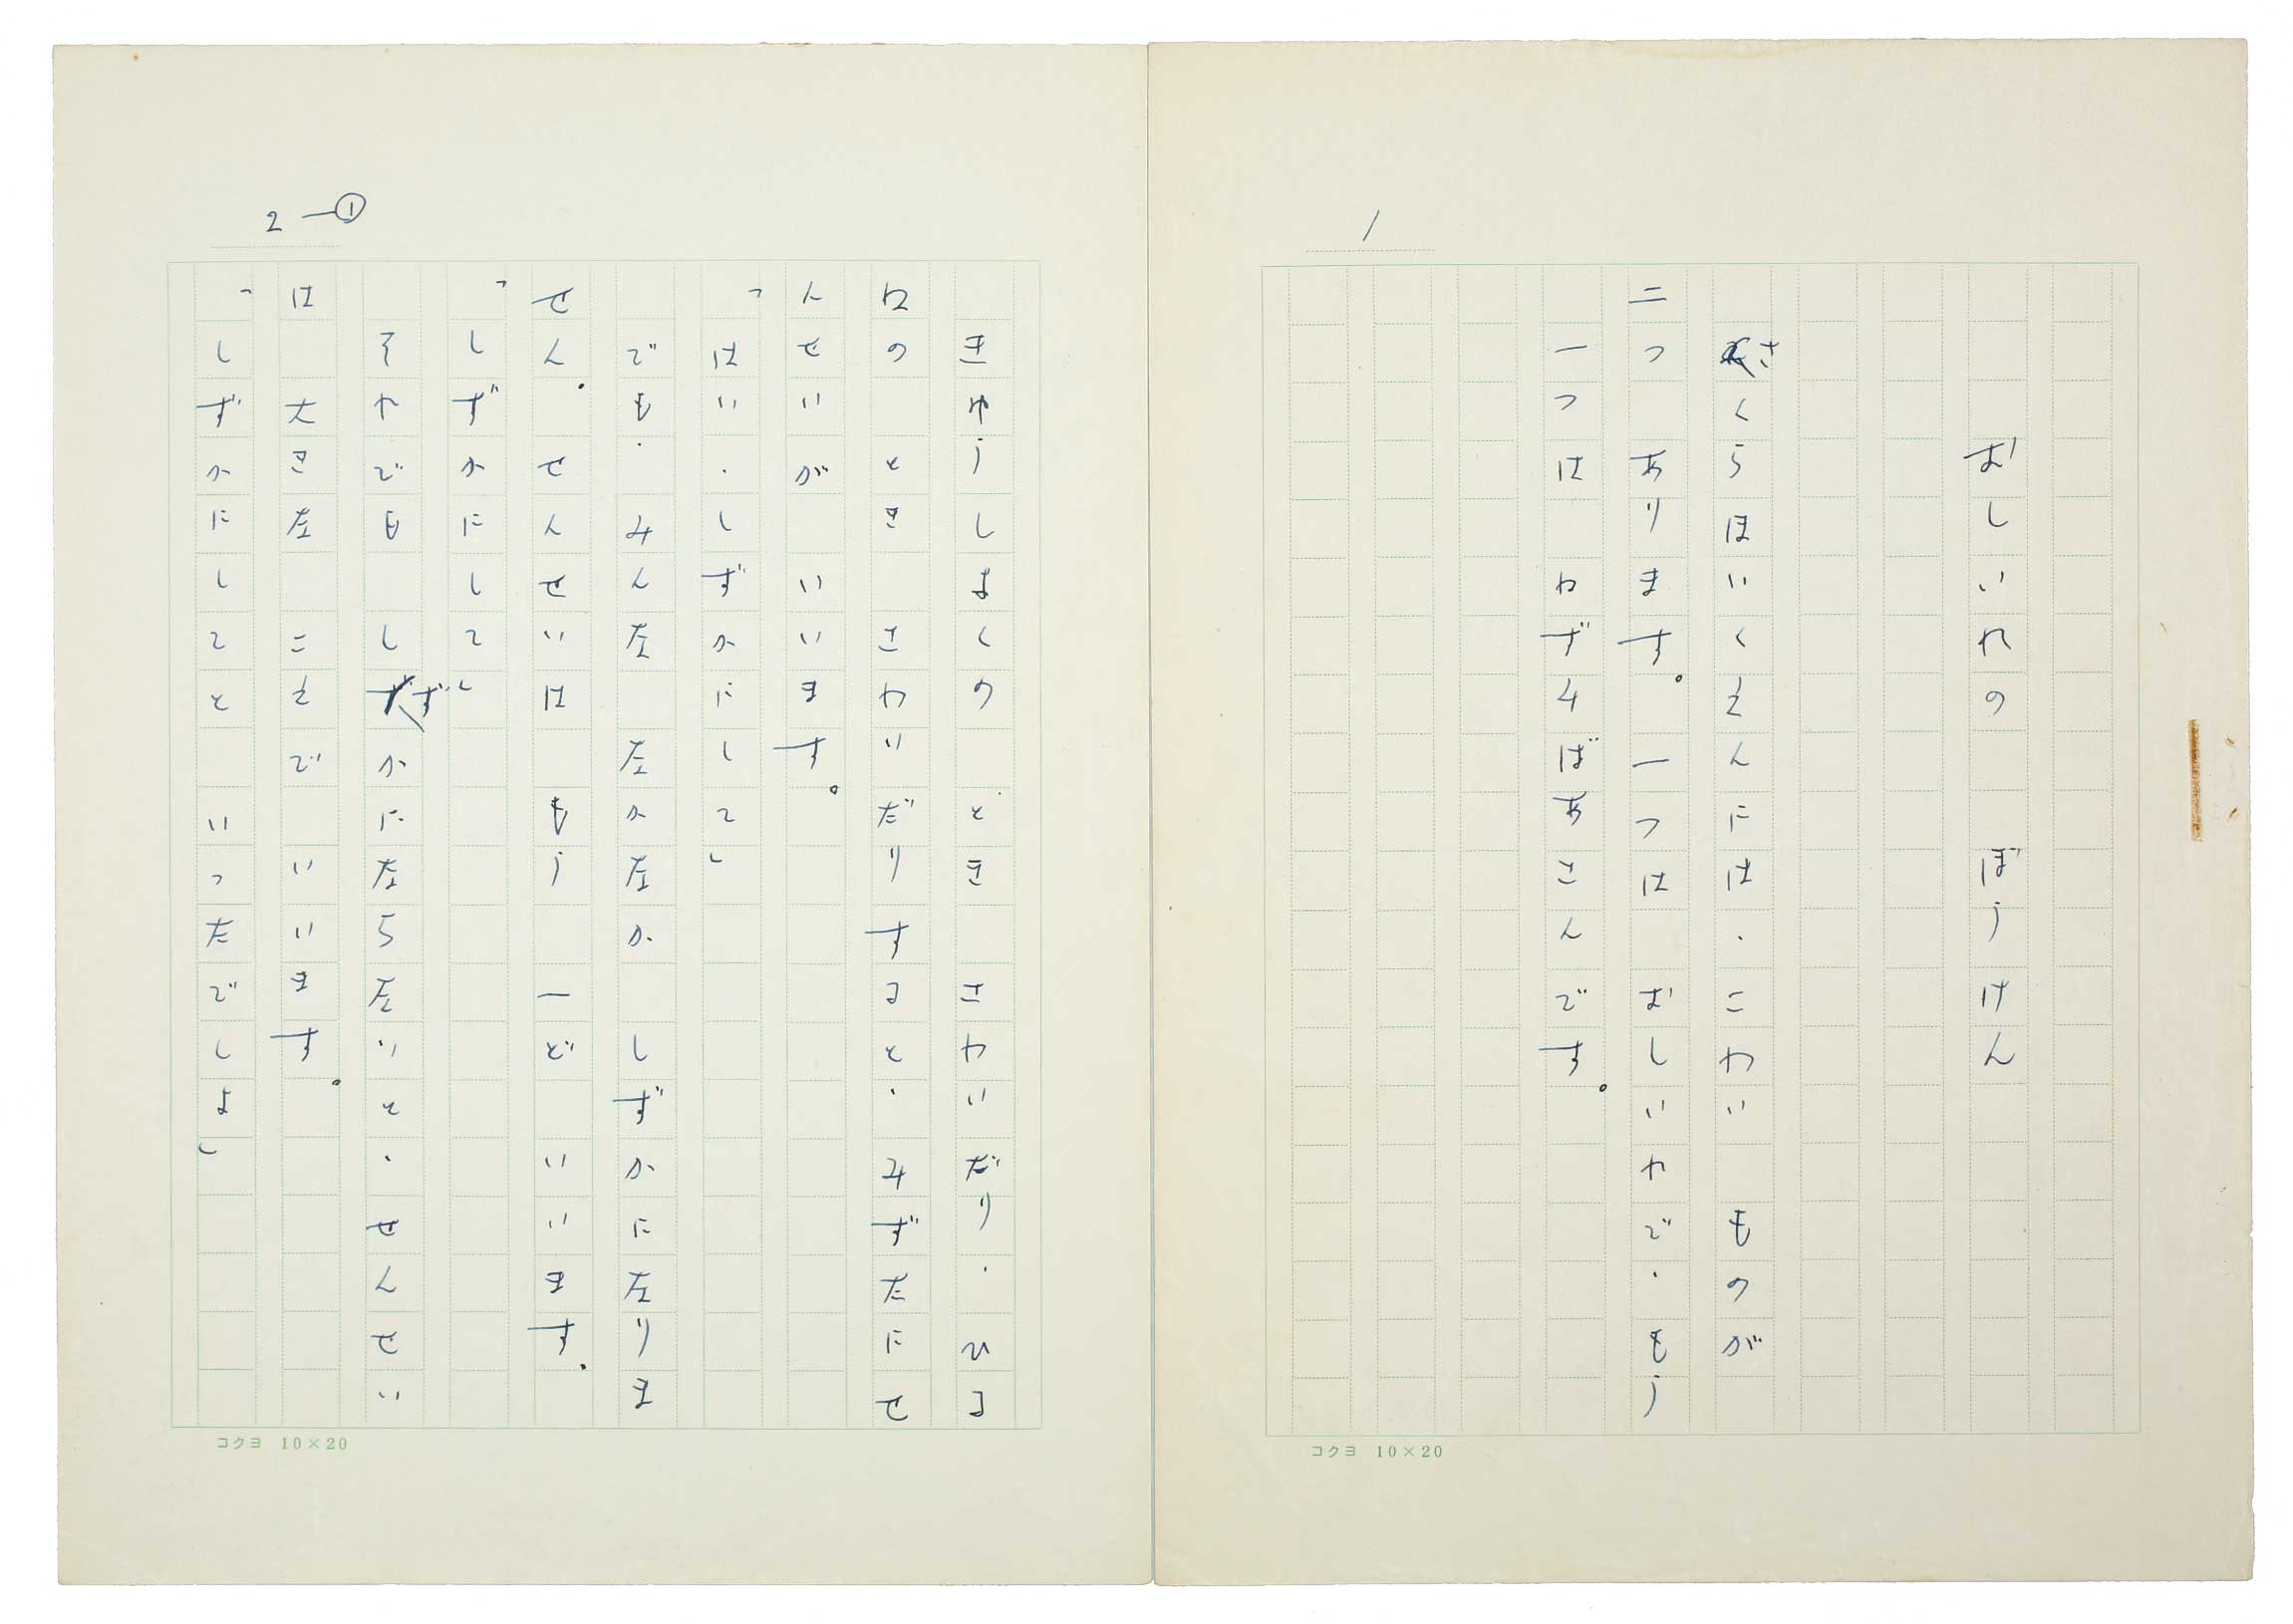 1
おしいれの ぼうけん
さくらほいくえんには、こわい ものが
二つ あります。 一つは おしいれで、もう
一つは ねずみばあさんです。
コクヨ 10×20
2—①
きゅうしょくの とき さわいだり、ひる
ねの とき さわいだりすると、みずたにせ
んせいが いいます。
「はい、しずかにして」
でも、みんな なかなか しずかになりま
せん。せんせいは もう 一ど いいます。
「しずかにして」
それでも しずかにならないと、せんせい
は 大きな こえで いいます。
「しずかにしてと いったでしょ」
コクヨ 10×20